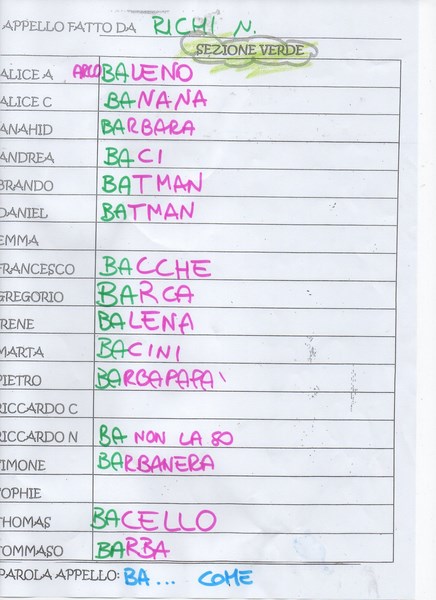 APPELLO FATTO DA RICHI N.
SEZIONE VERDE
ALICE A ARCOBALENO
ALICE C BANANA
ANAHID BARBARA
ANDREA BACI
BRANDO BATMAN
DANIEL BATMAN
EMMA
FRANCESCO BACCHE
GREGORIO BARCA
IRENE BALENA
MARTA BACINI
PIETRO BARBAPAPA'
RICCARDO C
RICCARDO N BA NON LA SO
SIMONE BARBANERA
SOPHIE
THOMAS BACELLO
TOMMASO BARBA
PAROLA APPELLO: BA... COME